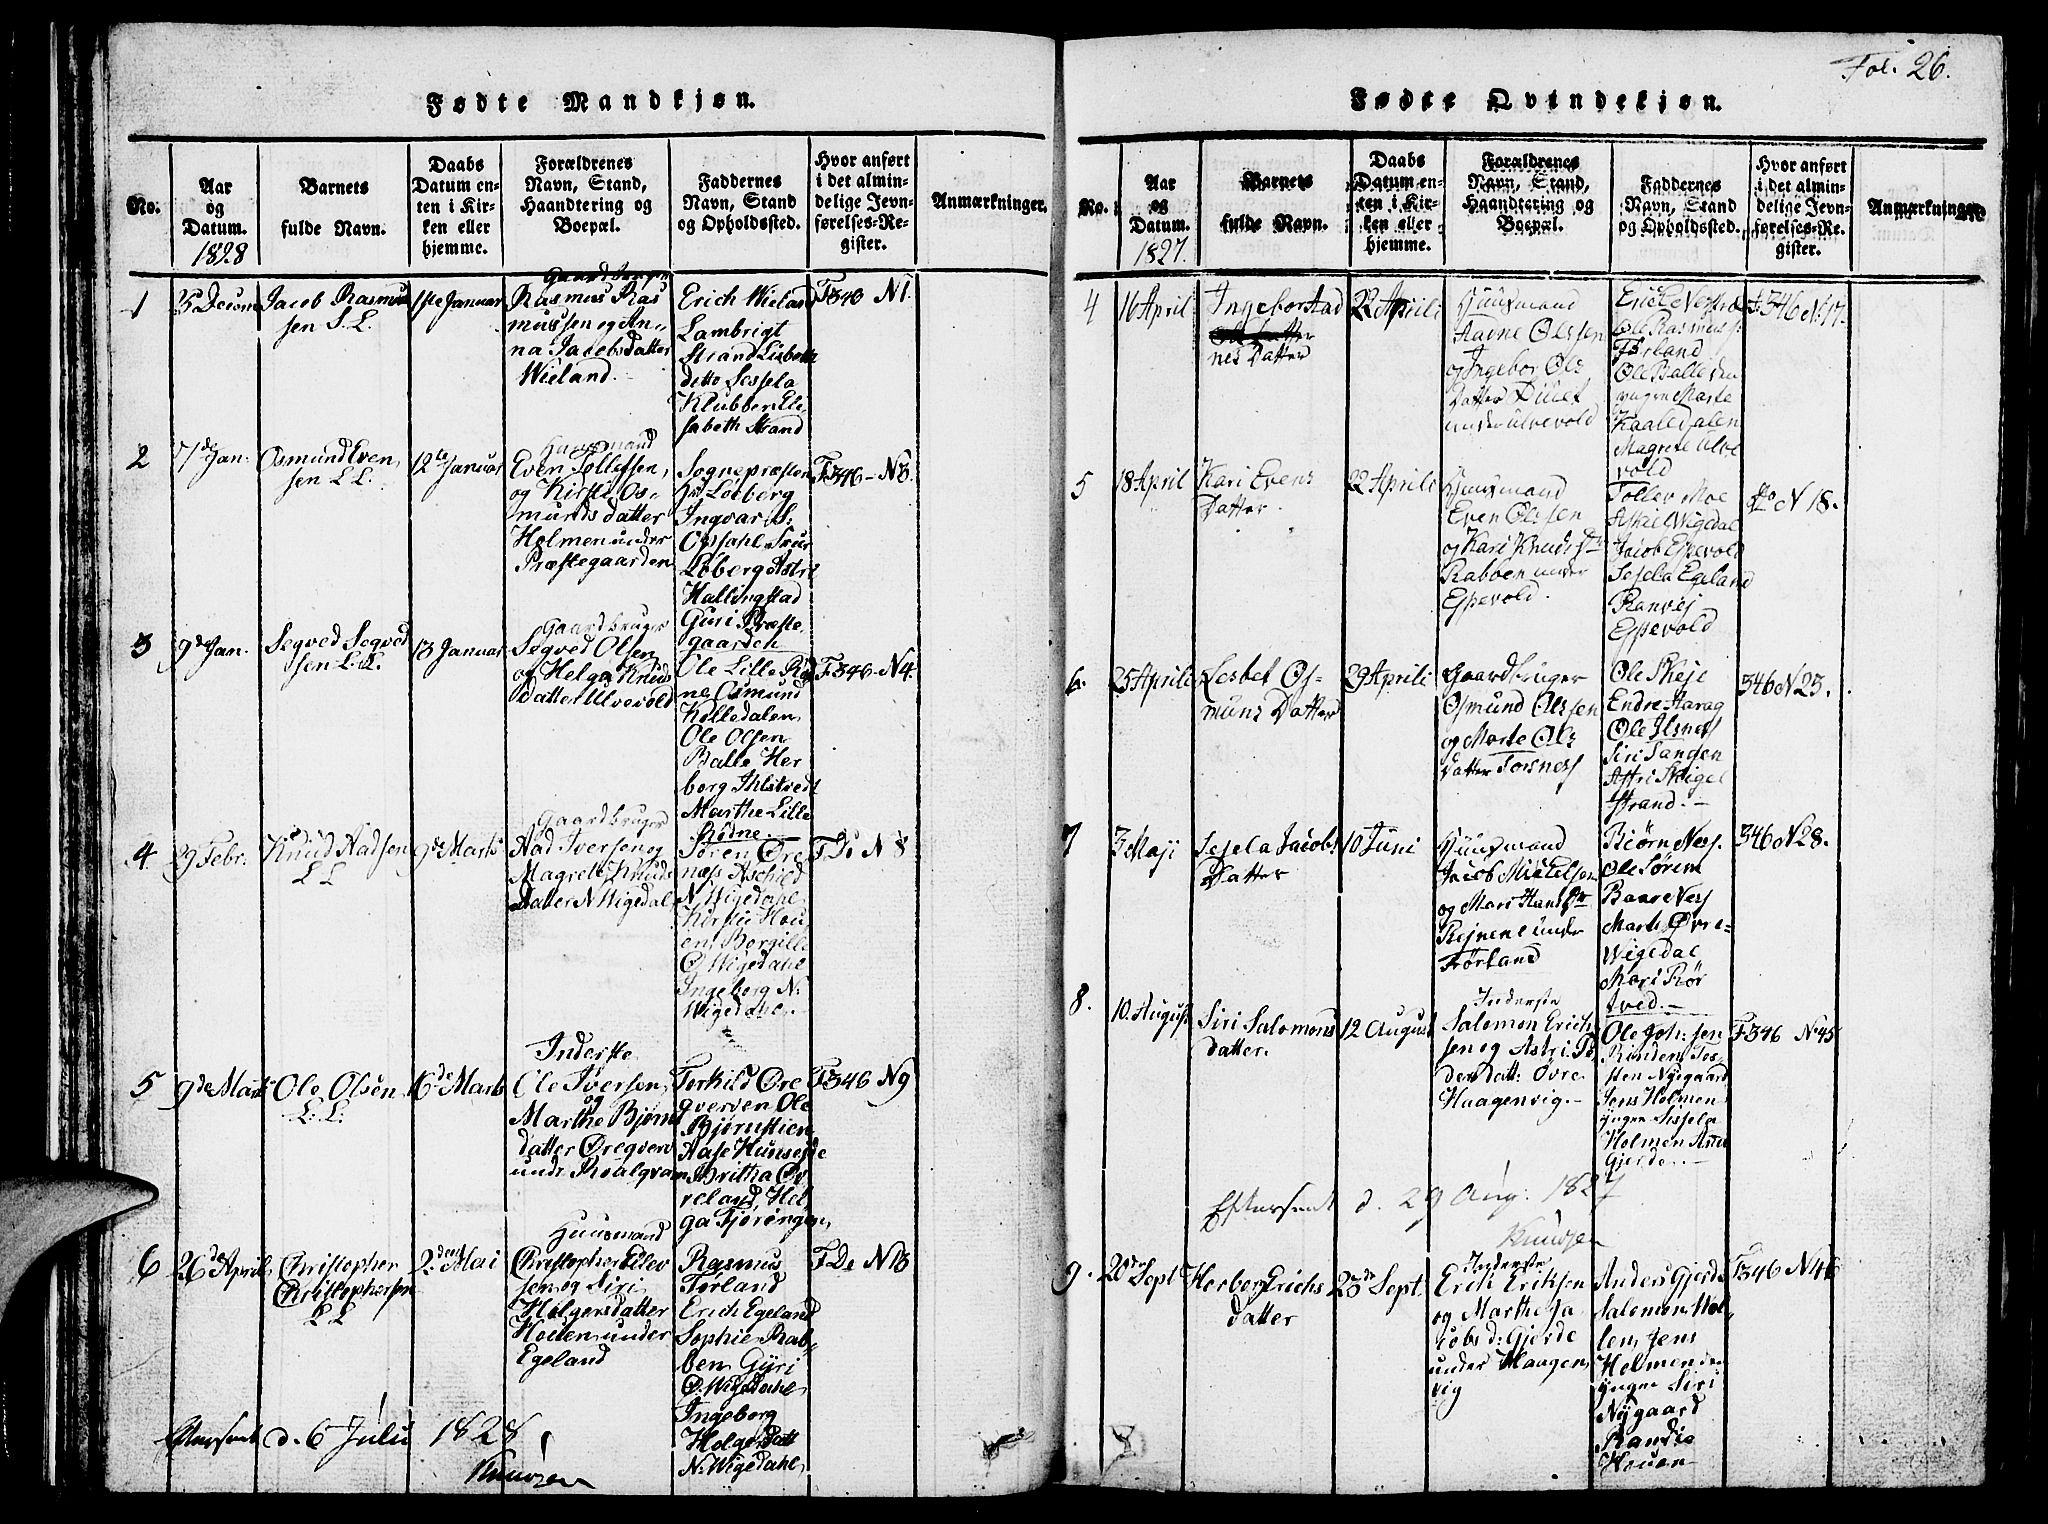 Fødte Mandkjøn.
No.
Aar
og
Datum.
1828
Barnets
fulde Navn.
Daabs
Datum en-
ten i Kir-
ken eller
hjemme.
Forældrenes
Navn, Stand,
Haandtering og
Boepæl.
Faddernes
Navn, Stand
og Opholdssted.
Hvor anført
i det almin-
delige Jevn-
førelses-Re-
gister.
Anmærkninger.
1
Jacob Rasmus
sen L.L.
1ste Januar
Rasmus Ras
mussen og An-
na Jacobsdatter
Wieland.
Erich Wieland
Lambrigt
Strand Lisbeth
detto Sessela
Klubben Ele
sabeth Strand
F346 N1.
2
7de Jan.
Osmund Even
sen L L.
12te Januar
Huusmand
Even Tollefsen,
og Kirsti Os-
munds datter
Holmen under
Præstegaarden
Sognepræsten
Hr. Løberg
Ingvar S:
Opsahl
Løberg Astri
Hallingstad
Guri Præste-
gaarden
F346- N3.
3
9de Jan.
Segved Segved
sen L.L.
13 Januar
Gaardbruger
Segved Olsen
og Helga Knuds
Datter Ulvevold
Ole Lille Rød
ne Osmund
Kolledalen
Ole Olsen
Balle Her
borg Ihlstvedt
Marthe Lille
Rødne.
F346- N4.
4
29 Febr.
Knud Aadsen
L L
9de Marts
Gaardbruger
Aad Iversen og
Magrete Knuds
Datter N Wigedal
Søren Øre
næss Aschild
N. Wigedahl
Kirstie Hou
en, Borgille
Ø. Wigedahl
Ingeborg N.
Wigedahl.
F Do N 8
5
9de Marts
Ole Olsen
L. L.
16de Marts
Inderste
Ole Iversen,
og
Marthe Bjørns
datter Øreqvern
undr. Roalqvam
Torkild Øre
qverven Ole
Bjørnstien
Aase
Britha Øv
reland, Hel
ga Tjøringen,
F346 N9
6
26de April
Christopher
Christophersen
L L
2den Mai
Huusmand
Christopher Ellev
sen og Siri
Holgersdatter
Hoilen under
Egeland
Rasmus
Førland
Erich Egeland
Sophie Rab-
ben, Gÿri
Ø. Wigedahl
Ingeborg
Holgersdatt
N. Wigedahl
F Do N 13
Efterseet d. 6 Juli 1828
Knudsen
Fol. 26.
Fødte Qvindekjøn.
No.
Aar
og
Datum.
1827.
Barnets
fulde Navn.
Daabs
Datum en-
ten i Kir-
ken eller
hjemme.
Forældrenes
Navn, Stand,
Haandtering og
Boepæl.
Faddernes
Navn, Stand
og Opholdssted.
Hvor anført
i det almin-
delige Jevn-
førelses-Re-
gister.
Anmærkninger.
4
16 April
Ingebor
nes Datter
22 Aprili
Huusmand
Aavne Olssen
og Ingebor Ols
Datter
under Ulvevold
Ole Rasmuss.
Førland
Ole Balle den
yngre Marte
Kaaledalen
Magrete Ulve
vold
F. 346 N. 17.
5
18 April
Kari Evens
Datter.
22 Aprili
Huusmand
Even Olssen
og Kari Knuds Dtr
Rabben under
Espevold.
Tollev Moe
Askiel Wigedal
Jacob Espevold
Sesela Egeland
Ranvei
Espevold
do N 18.
6.
25 Aprili
Lesbet Os-
muns Datter
29 Aprili
Gaardbruger
Osmund Olssen
og Marte Ols
Datter Torsness
Ole Skeje
Endre Aarag
Ole Ilsness
Siri Sanden
Astri Steigel
strand.-
346 N 23.
7
3 Maji
Sesela Jacobs
Datter
10 Juni
Huusmand
Jacob Mikelsen
og Mari Hans Dtr
Rejnene under
Førland
Biørn Ness.
Ole Sørem
Baar Ness
Marte Øvre-
Wigedal
Mari Rør
tved.-
346 N 28.
8.
10. August
Siri Salomons
datter.
12 August
Inderste
Salomon Erich
sen og Astri Pe
ders datt: Øvre
Haagenvig.-
Ole Joh: sen
Rinden Tos
sten Nygaard
Jens Holmen
yngre Sissela
Holmen Astri
Gjerde.-
F346 N45
Efterseet d. 29 Aug. 1827
Knudsen
9.
20de Sept
Herbor Erichs
datter
23de Sept.
Inderste
Erik Eriksen
og Marthe Ja
cobs d: Gjerde
under Haagen
vig
Anders Gjerde
Salomon Hol-
len, Jens
Holmen den
yngre Siri
Nygaard
Randie
Houen
F346 N46